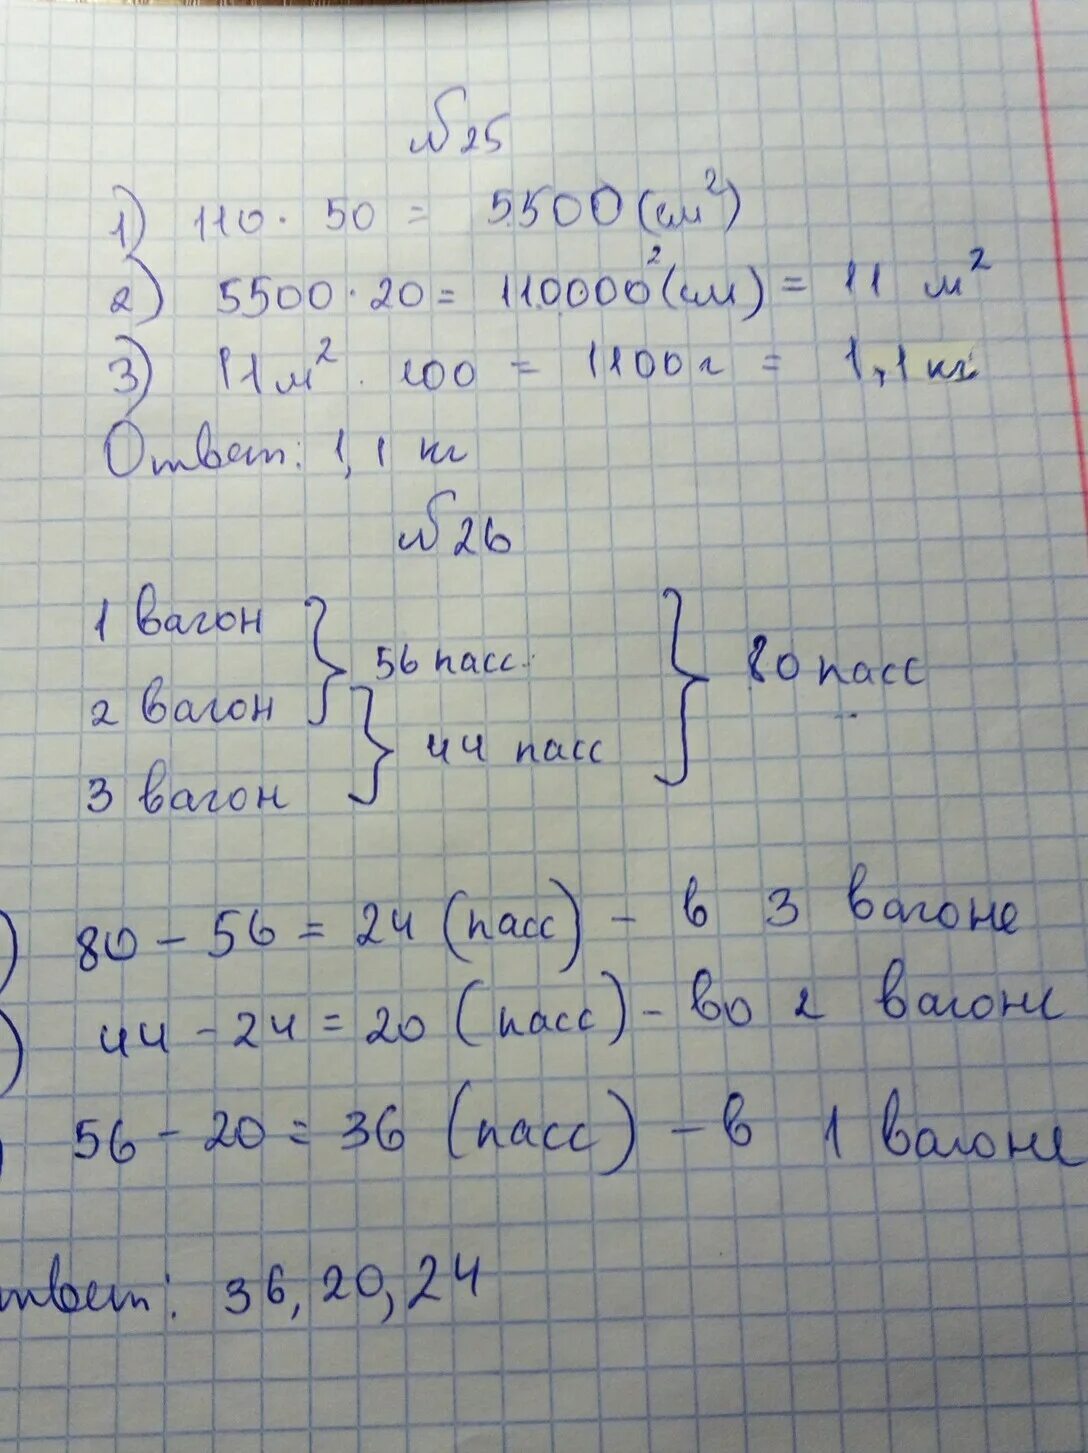 №25
1) 110 · 50 = 5500 (см²)
2) 5500 · 20 = 110000² (см) = 11 м²
3) 11 м² · 100 = 1100 г = 1,1 кг
Ответ: 1,1 кг
№26
1 вагон
56 пасс.
80 пасс
2 вагон
44 пасс
3 вагон
) 80 – 56 = 24 (пасс) – в 3 вагоне
) 44 – 24 = 20 (пасс) – во 2 вагоне
) 56 – 20 = 36 (пасс) – в 1 вагоне
твет: 36, 20, 24